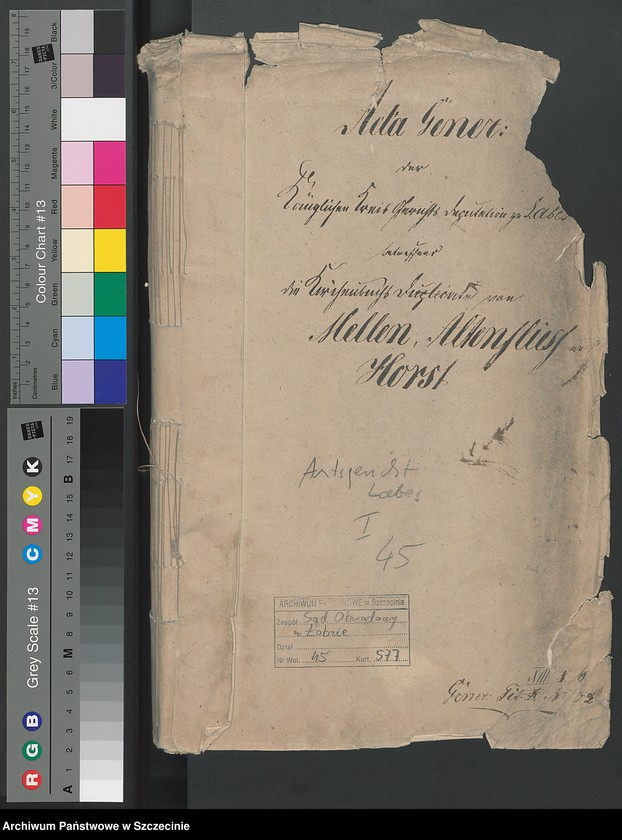 Acta Gener:
der
Königlichen Kreis Gerichts Deputation zu Labes
betreffend
die Kirchenbuchs Duplicate von
Mellen, Altenfliess
Horst
Amtsgericht
Labes
I
45
ARCHIWUM PAŃSTWOWE w Szczecinie
Zespół Sąd Obwodowy
w Łobzie
Dział
Nr Wol. 45 Kart. 577
Gener. Tit.
Colour Chart #13
Blue
Cyan
Green
Yellow
Red
Magenta
White
3/Color
Black
Inches
Centimetres
Grey Scale #13
R G B
C M Y K
A 1 2 3 4 5 6 M 8 9 10 11 12 13 14 15 B 17 18 19
Archiwum Państwowe w Szczecinie